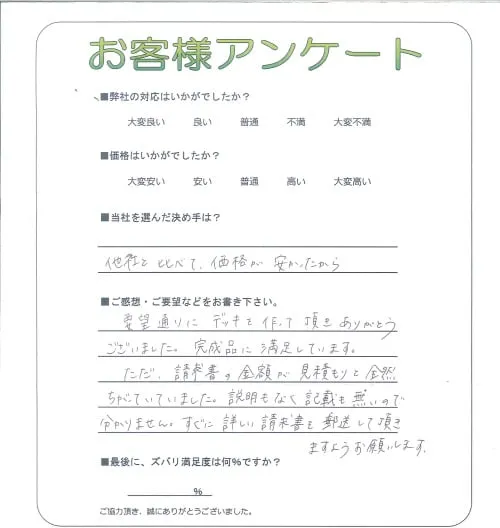 お客様アンケート
■弊社の対応はいかがでしたか?
大変良い 良い 普通 不満 大変不満
■価格はいかがでしたか?
大変安い 安い 普通 高い 大変高い
■当社を選んだ決め手は?
他社と比べて、価格が安かったから
■ご感想・ご要望などをお書き下さい。
要望通りにデッキを作って頂きありがとう
ございました。完成品に満足しています。
ただ、請求書の金額が見積もりと全然
ちがていていました。説明もなく記載も無いので
分かりません。すぐに詳しい請求書を郵送して頂き
ますようお願いします。
■最後に、ズバリ満足度は何%ですか?
%
ご協力頂き、誠にありがとうございました。